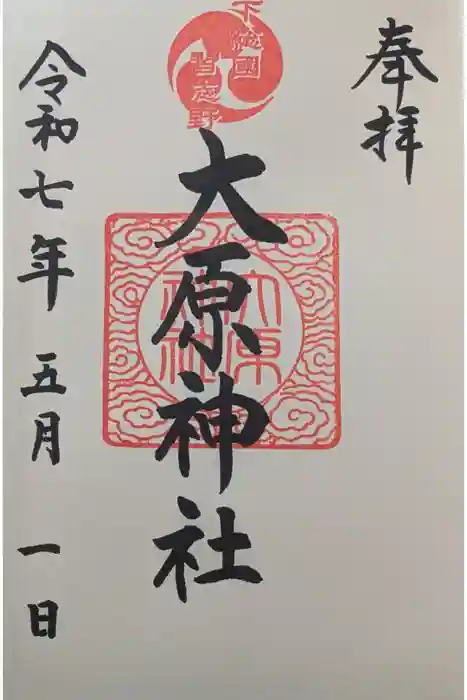 奉拝
下總國
習志野
大原神社
大原
神社
令和七年五月一日